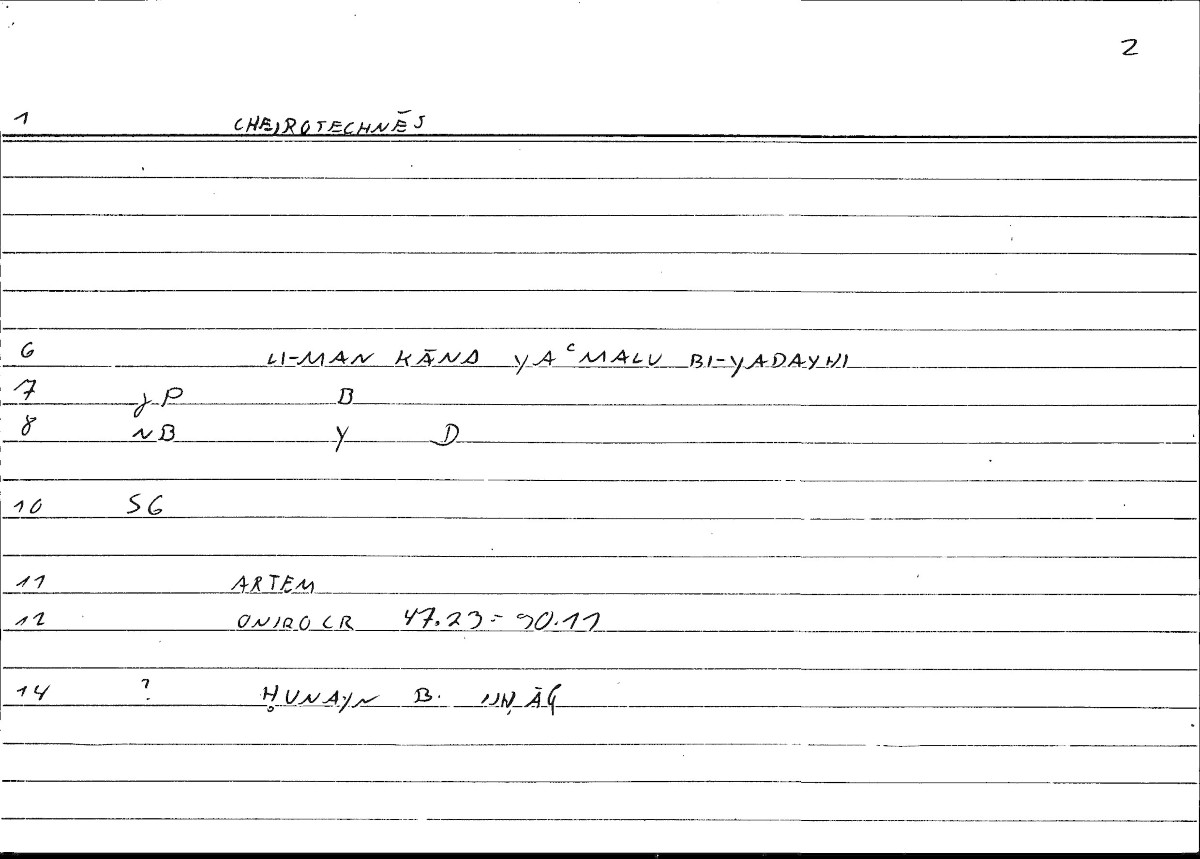 2
1 CHEIROTECHNĒS
6 LI-MAN KĀNA YAᶜMALU BI-YADAYHI
7 P B
8 NB Y D
10 SG
11 ARTEM
12 ONIROCR 47.23 = 90.11
14 ? ḤUNAYN B. ISḤĀQ